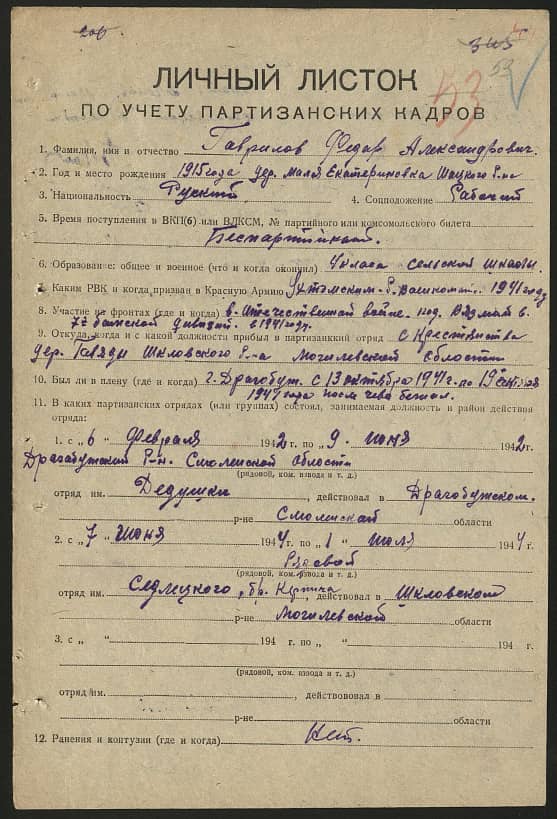 206
345
53
53
ЛИЧНЫЙ ЛИСТОК
ПО УЧЕТУ ПАРТИЗАНСКИХ КАДРОВ
1. Фамилия, имя и отчество Гаврилов Федар Александрович.
2. Год и место рождения 1915 года дер. Малая Екатериновка Шацкого Р-на
3. Национальность Руский 4. Соцположение Рабочий
5. Время поступления в ВКП(б) или ВЛКСМ, № партийного или комсомольского билета
Беспартийный.
6. Образование: общее и военное (что и когда окончил) 4 класа сельской школы.
7. Каким РВК и когда призван в Красную Армию Ухтомским Р. Воинкомат. 1941 году
8. Участие на фронтах (где и когда) в. Отечественной войне. под. Вязмай в.
77 дивизии. в 1941 году.
9. Откуда, когда и с какой должности прибыл в партизанкий отряд с Крестьянства
дер. Шкловского Р-на Могилевской области
10. Был ли в плену (где и когда) г. Драгобуж. с 13 октября 1941 г. по 19
1941 года после чево бежал.
11. В каких партизанских отрядах (или группах) состоял, занимаемая должность и район действия
отряда:
1. с „ 6 “ Февраля 1942 г. по „ 9. “ июня 1942 г.
Драгобужский Р-н. Смоленской области
(рядовой, ком. взвода и т. д.)
отряд им. Дедушки, действовал в Драгобужском.
р-не Смоленской области
2. с „ 7 “ июня 1944 г. по „ 1 “ июля 1944 г.
Рядовой
(рядовой, ком. взвода и т. д.)
отряд им. Седлецкого, бр. Кирпича, действовал в Шкловском
р-не Могилевской области
3. с „ “ 194 г. по „ “ 194 г.
(рядовой, ком. взвода и т. д.)
отряд им. , действововал в
р-не области
12. Ранения и контузии (где и когда) Нет.